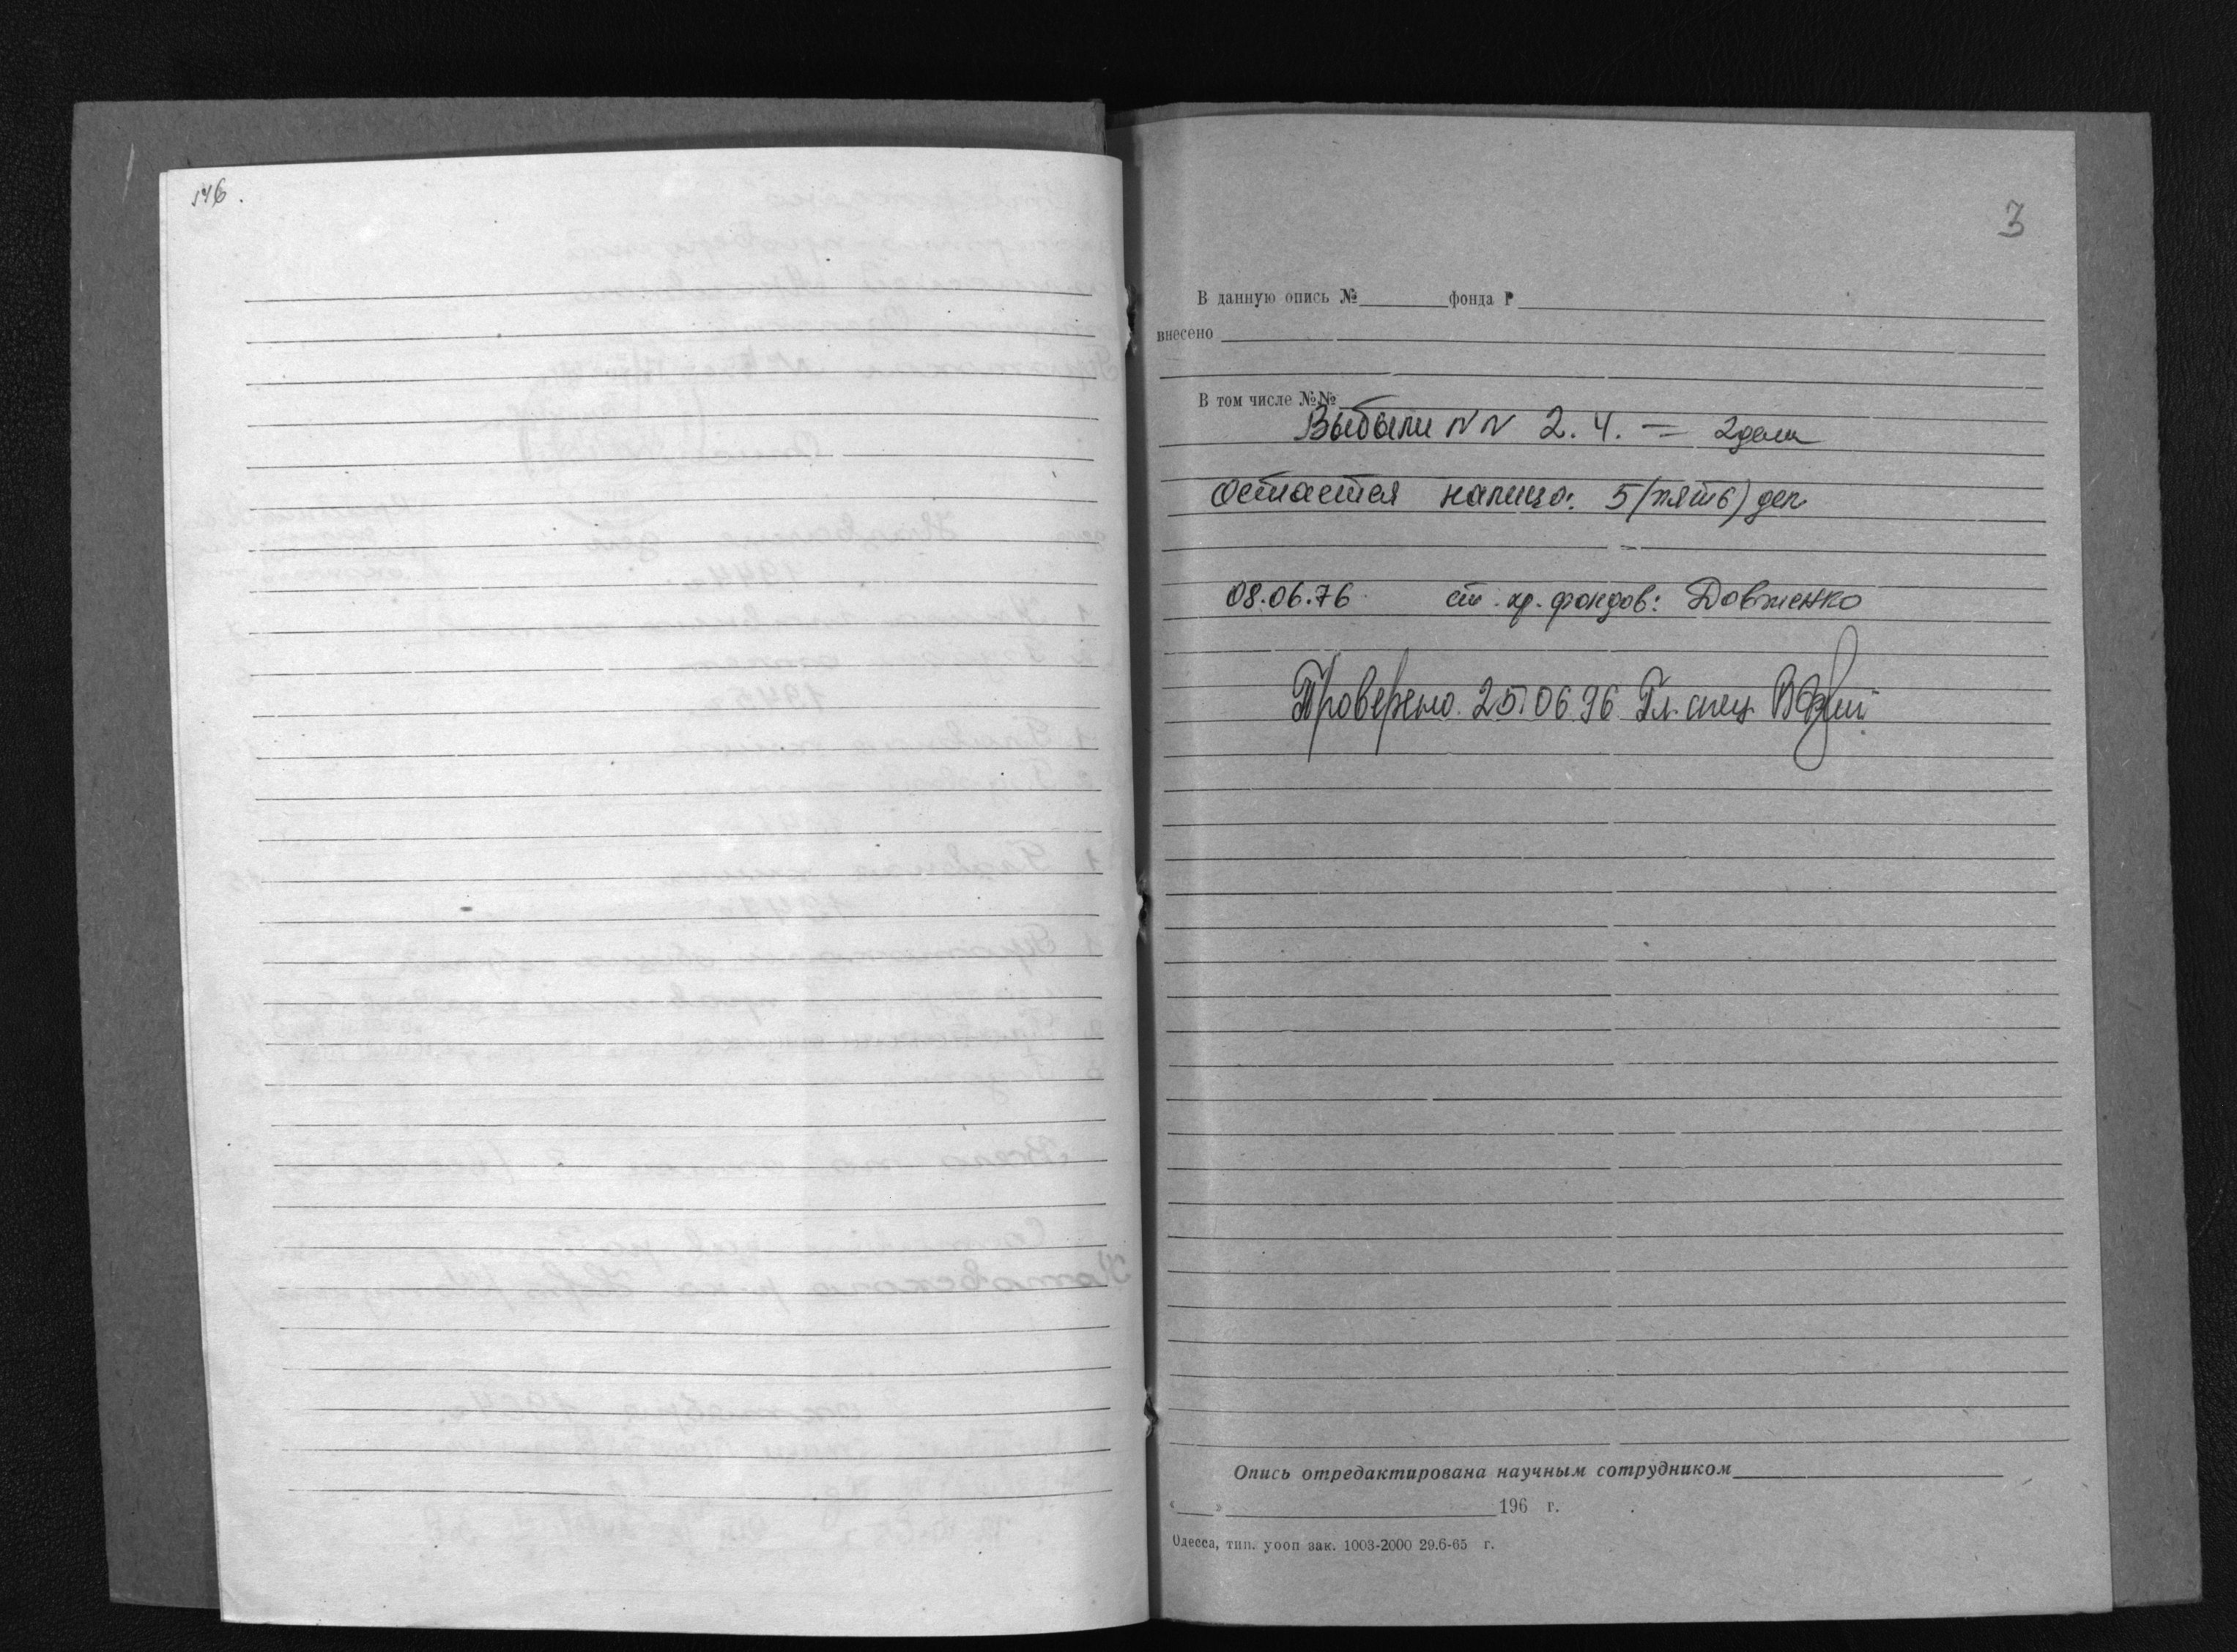 146.
3
В данную опись № фонда Р
внесено
В том числе №№
Выбыли NN 2.4. — 2 дела
Остается налицо: 5 (пять) дел
08.06.76 ст. хр. фондов: Довженко
Проверено 25.06.96 Гл. спец.
Опись отредактирована научным сотрудником
« » 196 г.
Одесса, тип. уооп зак. 1003-2000 29.6-65 г.